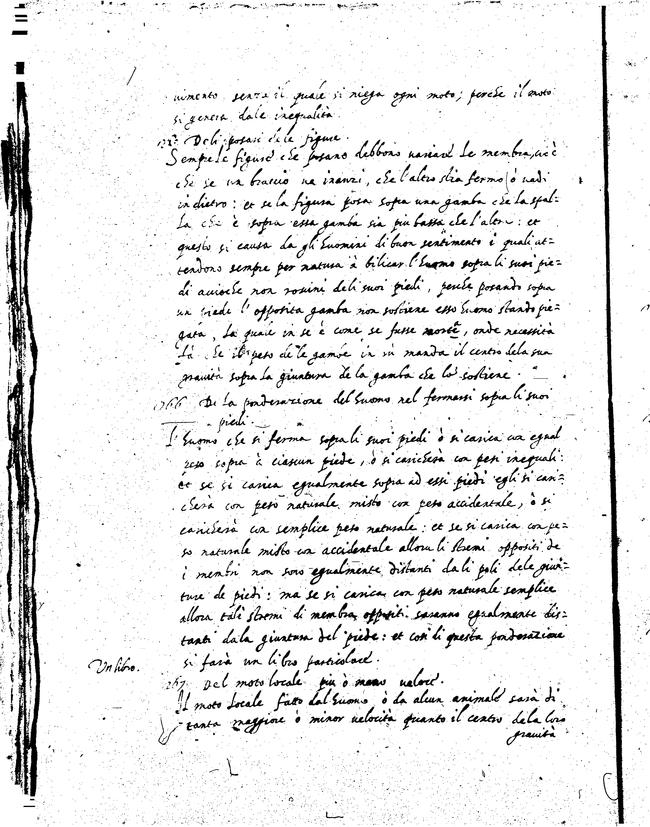 uimento senza il quale si niega ogni moto; perche il moto
si genera dale inequalità.
Deli posari dele figure.
Sempre le figure che posano debbono uariare le membra, cio è
che se un braccio ua inanzi, che l'altro stia fermo, ò uadi
indietro: et se la figura posa sopra una gamba che la spal=
la che è sopra essa gamba sia più bassa che l'altra: et
questo si causa da gli huomini di buon sentimento i quali at=
tendono sempre per natura à bilicar l'huomo sopra li suoi pie=
di acioche non rouini deli suoi piedi, perche posando sopra
un piede l'opposita gamba non sostiene esso huomo stando pie=
gata, la quale in se è come se fusse morta, onde necessità
fà che il peso dele gambe in sù manda il centro dela sua
grauità sopra la giuntura dela gamba che lo sostiene.
266 De la ponderazione del huomo nel fermarsi sopra li suoi
piedi.
l'huomo che si ferma sopra li suoi piedi ò si carica con egual
peso sopra à ciascun piede, ò si caricherà con pesi inequali:
et se si carica egualmente sopra ad essi piedi egli si cari=
cherà con peso naturale misto con peso accidentale, ò si
caricherà con semplice peso naturale: et se si carica con pe=
so naturale misto con accidentale allora li stremi oppositi de
i membri non sono egualmente distanti dali poli dele giun=
ture de piedi: ma se si carica con peso naturale semplice
allora tali stremi di membra oppositi saranno egualmente dis=
tanti dala giuntura del piede: et così di questa ponderazione
Un libro.
si farà un libro particolare.
267 Del moto locale più ò meno veloce.
Il moto locale fatto dal huomo ò da alcun animale sarà di
tanta maggiore ò minor velocità quanto il centro dela loro
grauità